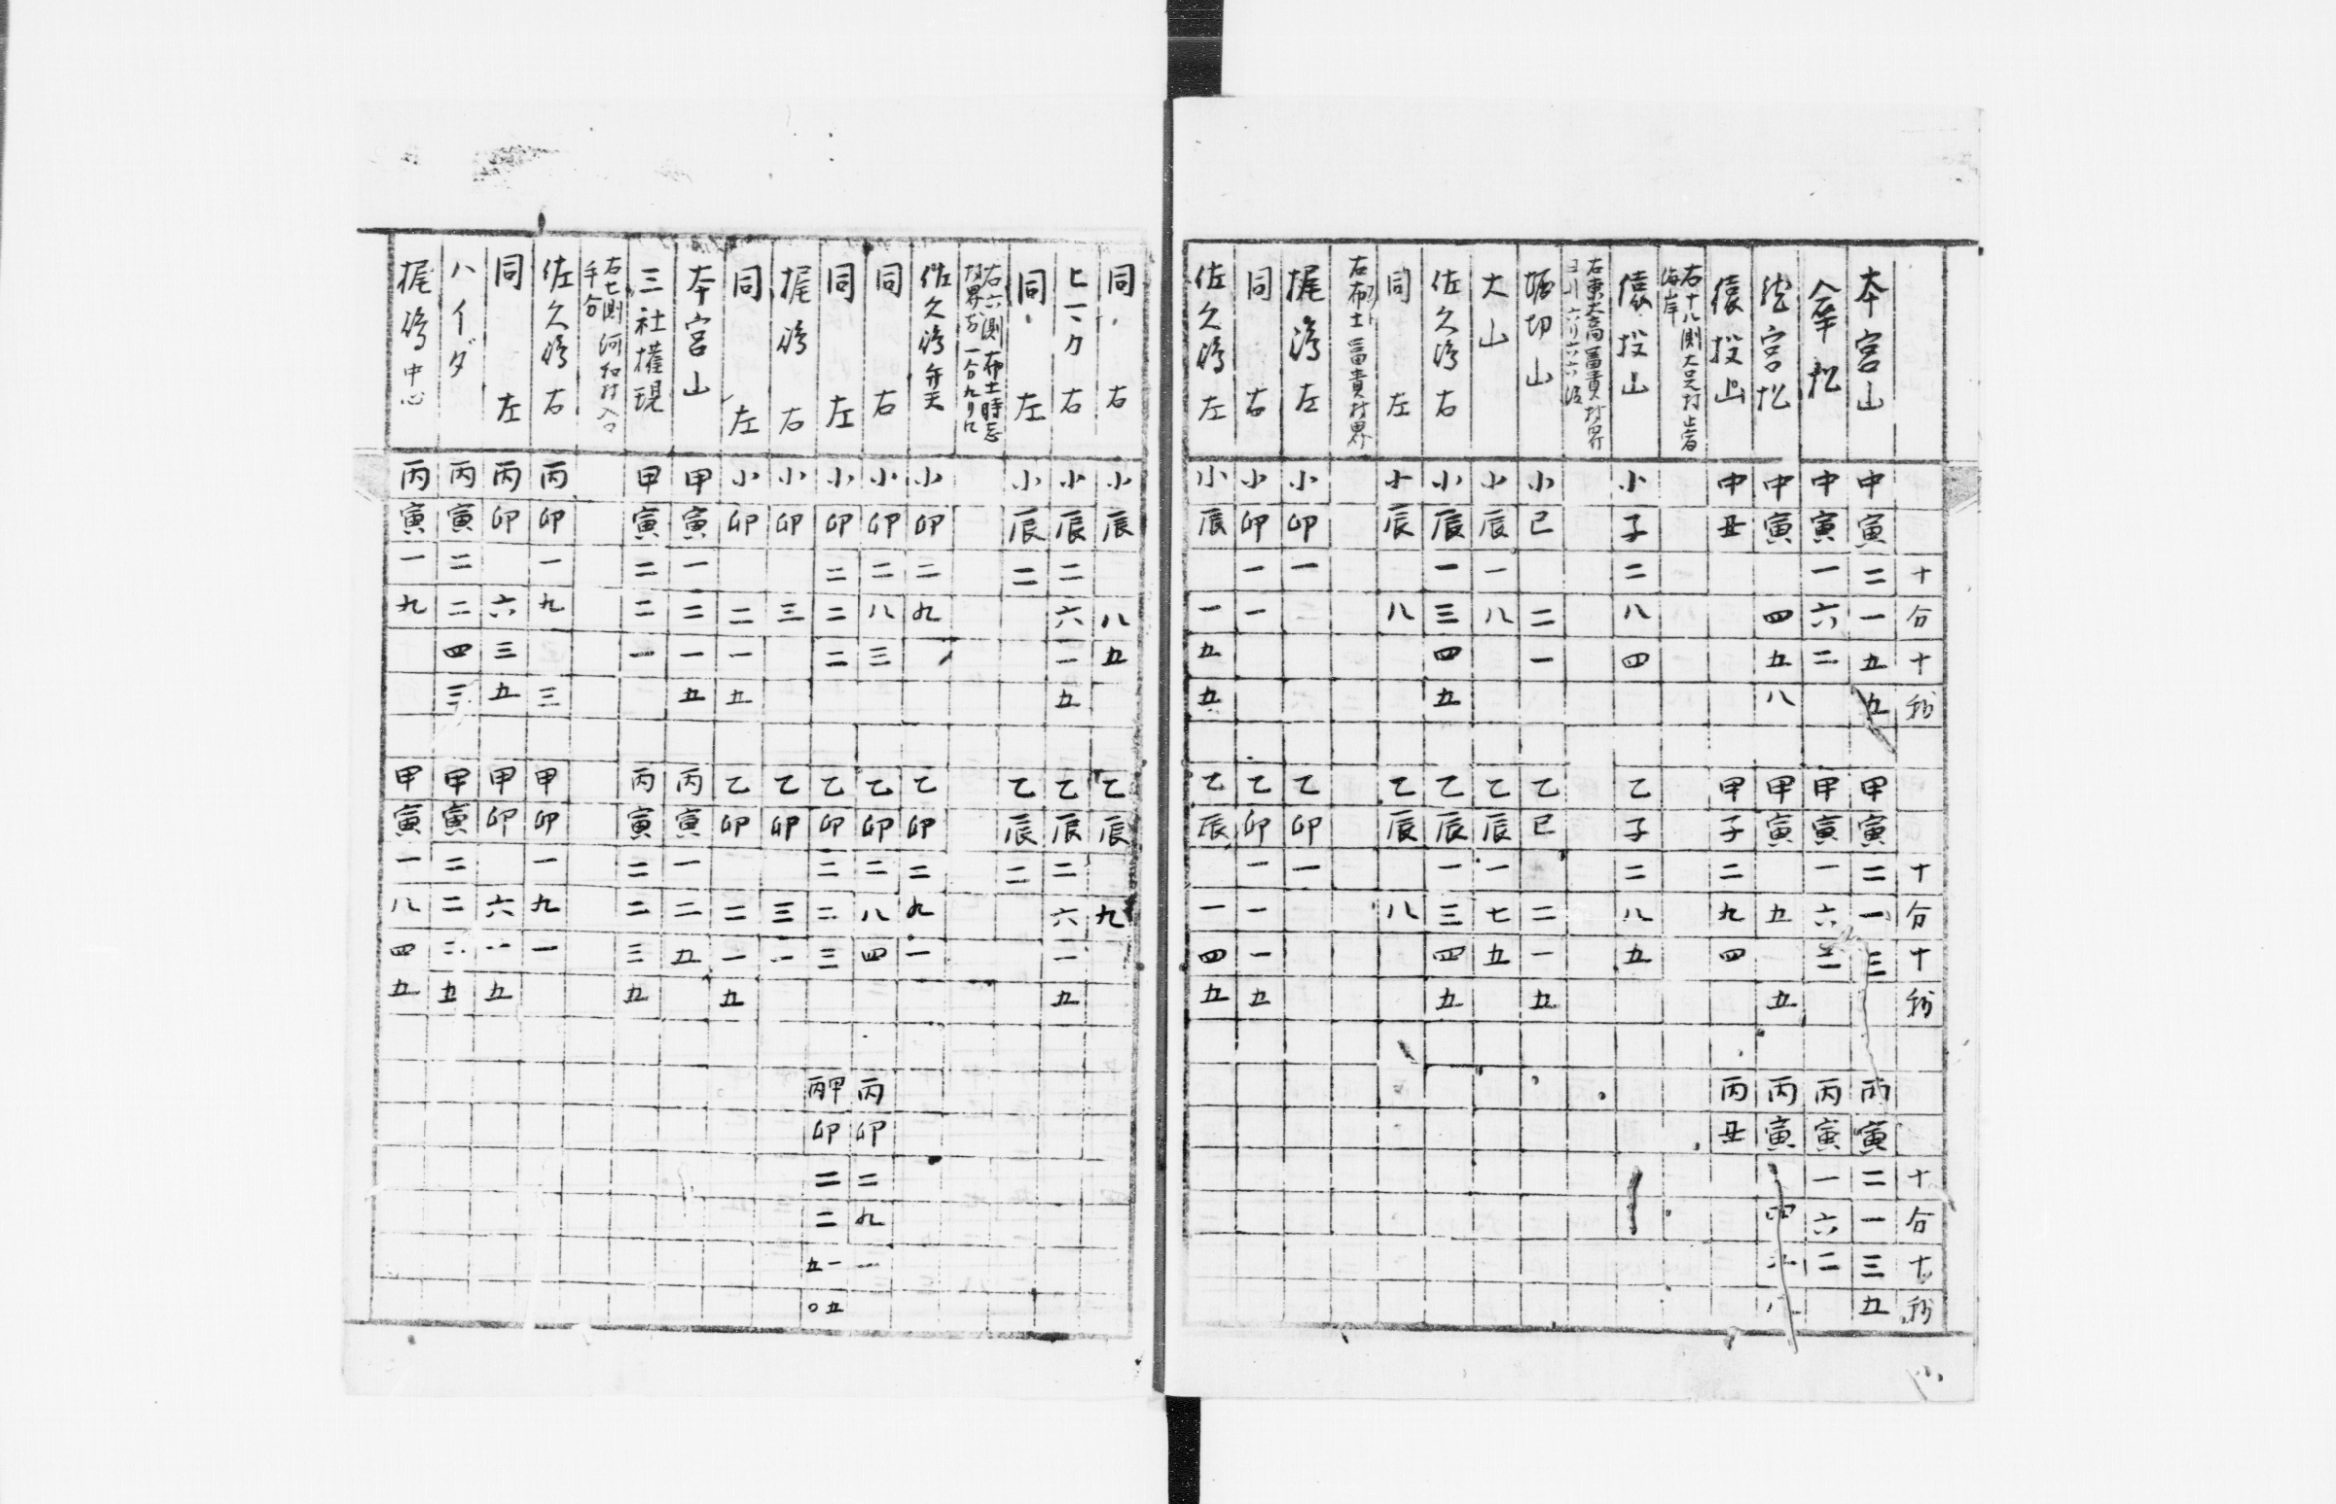 十分十秒 十分十秒 十分十秒
本宮山 中寅二一五五 甲寅二一三 丙寅二一三五
傘松 中寅一六二 甲寅一六三 丙寅一六二
宮松 中寅四五八 甲寅五五 丙寅四八
猿投山 中丑 甲子二九四 丙丑
右十八側大足村止宿
海岸
猿投山 小子二八四 乙子二八五
右東大高冨貴村界
ヨリ六リ六六
堀切山 小巳二一 乙巳二一五
大山 小辰一八 乙辰一七五
佐久湾右 小辰一三四五 乙辰一三四五
同左 小辰八 乙辰八
右布土冨貴村界
梶湾左 小卯一 乙卯一
同右 小卯一一 乙卯一一一五
佐久湾左 小辰一五五 乙辰一四五
同右 小辰八五 乙辰九
ヒーカ右 小辰二六一五 乙辰二六一五
同左 小辰二 乙辰二
右六測布土時志
村界
佐久湾弁天 小卯二九 乙卯二九一
同右 小卯二八三 乙卯二八四 丙卯二九一
同左 小卯二二二 乙卯二二三 丙甲卯二二五一〇五
梶湾右 小卯三 乙卯三一
同左 小卯二一五 乙卯二一五
本宮山 甲寅一二一五 丙寅一二五
三社権現 甲寅二二一 丙寅二二三五
右七測河和村入口
手分
佐久湾右 丙卯一九三 甲卯一九一
同左 丙卯六三五 甲卯六一五
ハイダ 丙寅二二四三 甲寅二二二五
梶湾中心 丙寅一九 甲寅一八四五